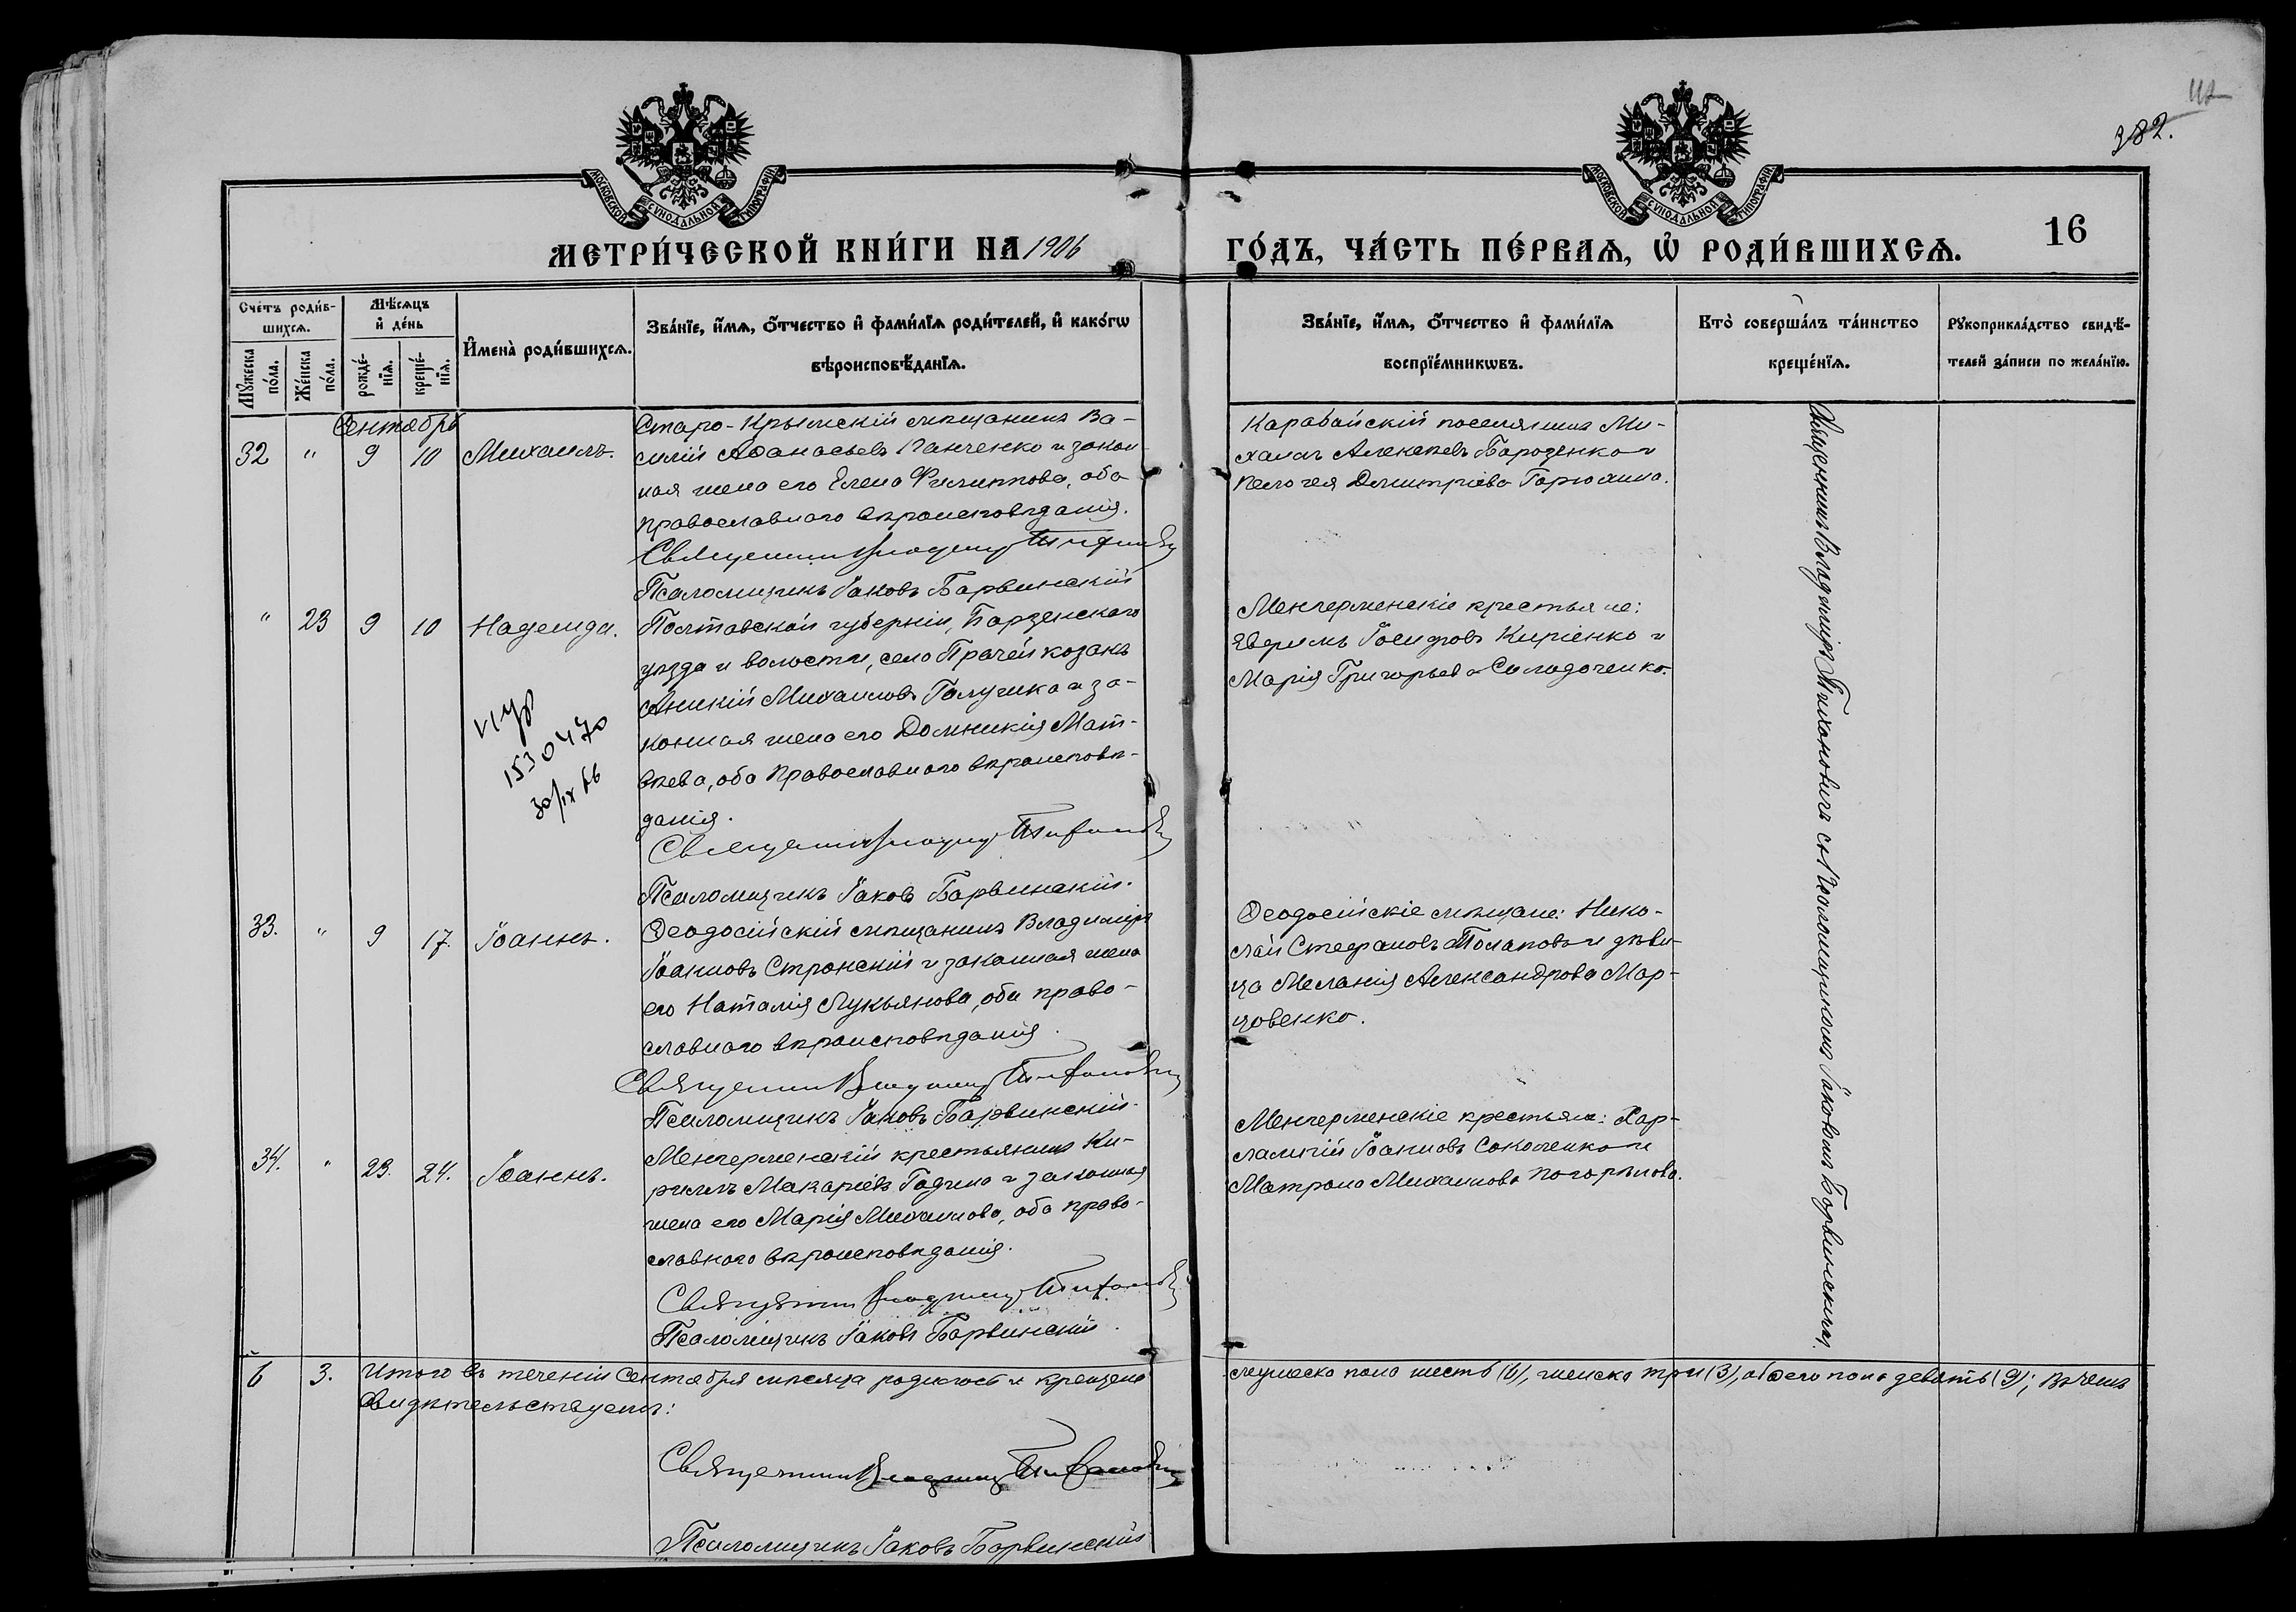 МОСКОВСКОЙ СУНОДАЛЬНОЙ ТИПОГРАФІИ
МОСКОВСКОЙ СУНОДАЛЬНОЙ ТИПОГРАФІИ
382.
МЕТРИ́ЧЕСКОЙ КНИ́ГИ НА 1906
ГО́ДЪ, ЧА́СТЬ ПЕ́РВАѦ, Ѡ҆ РОДИ́ВШИХСѦ.
16
Сче́тъ роди́в-
шихсѧ.
Мꙋ́жеска
по́ла.
Же́нска
по́ла.
Мѣ́сѧцъ
и҆ де́нь
рожде́-
нїѧ.
креще́-
нїѧ.
И҆мена̀ роди́вшихсѧ.
Зва́нїе, и҆́мѧ, ѻ҆́тчество и҆ фами́лїѧ роди́телей, и҆ како́гѡ
вѣроисповѣ́данїѧ.
Зва́нїе, и҆́мѧ, ѻ҆́тчество и҆ фами́лїѧ
воспрїе́мникѡвъ.
Кто̀ соверша́лъ та́инство
креще́нїѧ.
Рꙋкоприкла́дство свидѣ́-
телей за́писи по жела́нїю.
Сентябрь
32 " 9 10 Михаилъ.
Старо-Крымскій мѣщанинъ Ва-
силій Аѳанасьевъ Панченко и закон-
ная жена его Елена Филиппова, оба
православнаго вѣроисповѣданія.
Священникъ Владимиръ Тихановичъ
Псаломщикъ Іаковъ Барвинскій
Карабайскій поселянинъ Ми-
хаилъ Алексѣевъ и
Пелагея Димитріева
" 23 9 10 Надежда.
Полтавской губерніи, Борзенскаго
уѣзда и волости, село Прачей козакъ
Михаиловъ и за-
конная жена его Домникія Мат-
вѣева, оба православнаго вѣроисповѣ-
данія.
Священникъ Владимиръ Тихановичъ
Псаломщикъ Іаковъ Барвинскій.
Менгерменскіе крестьяне:
Іосифовъ Киріенко и
Марія Григорьева Солодоченко.
1530470
30/IX 66
33. " 9 17. Іоаннъ.
Ѳеодосійскій мѣщанинъ Владиміръ
Іоанновъ Стронскій и законная жена
его Наталія Лукьянова, оба право-
славнаго вѣроисповѣданія.
Священникъ Владимиръ Тихановичъ
Псаломщикъ Іаковъ Барвинскій.
Ѳеодосійскіе мѣщане: Нико-
лай Стефановъ и дѣви-
ца Меланія Александрова Мар-
цовенко.
34. " 23. 24. Іоаннъ.
Менгерменскій крестьянинъ Ки-
риллъ Макаріевъ Гадина и законная
жена его Марія Михаилова, оба право-
славнаго вѣроисповѣданія.
Священникъ Владимиръ Тихановичъ
Псаломщикъ Іаковъ Барвинскій.
Менгерменскіе крестьяне: Хар-
лампій Іоанновъ и
Матрона Михаилова Погорѣлова.
Священникъ Владиміръ Тихановичъ съ Псаломщикомъ Іаковомъ Барвинскимъ.
6 3. Итого въ теченіи Сентября мѣсяца родилось и крещено
мужеска пола шесть (6), женска три (3), обоего пола девять (9); въ чемъ
свидѣтельствуемъ:
Священникъ Владимиръ Тихановичъ
Псаломщикъ Іаковъ Барвинскій